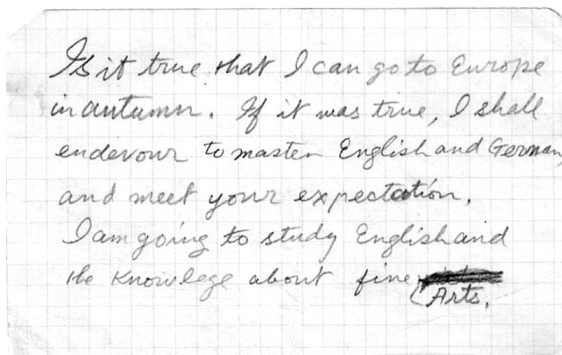 Is it true that I can go to Europe
in autumn. If it was true, I shall
endevour to master English and German,
and meet your expectation.
I am going to study English and
the Knowlege about fine
Arts.